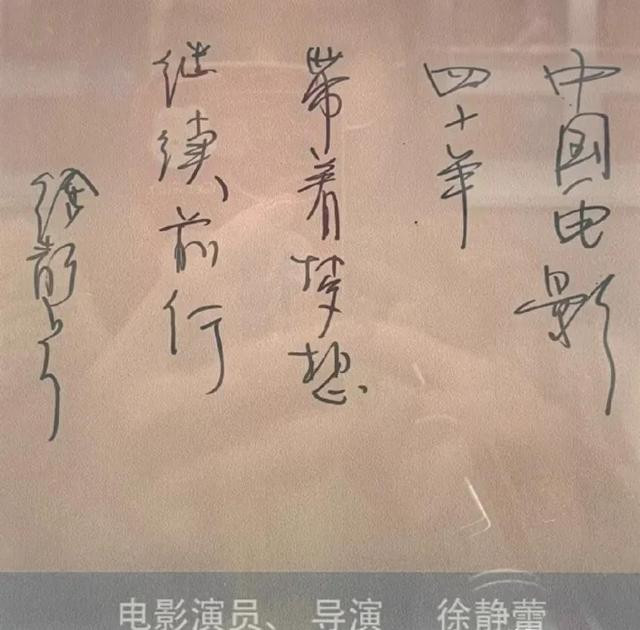 中国电影
四十年
带着梦想
继续前行
电影演员、导演 徐静蕾